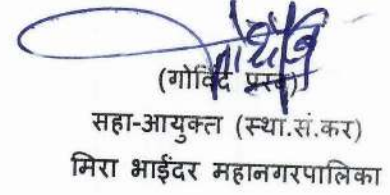 (गोविंद परब)
सहा-आयुक्त (स्था.सं.कर)
मिरा भाईंदर महानगरपालिका